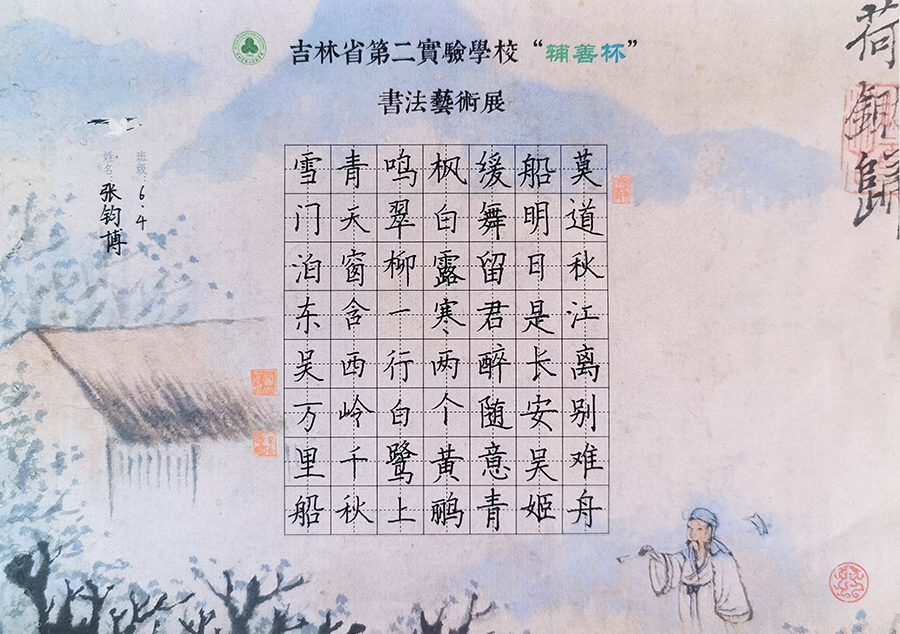 吉林省第二實驗學校“辅善杯”
書法藝術展
荷鋤歸
莫道秋江离别难舟
船明日是长安吴姬
缓舞留君醉随意青
枫白露寒两个黄鹂
鸣翠柳一行白鹭上
青天窗含西岭千秋
雪门泊东吴万里船
班級 6.4
姓名 张钧博